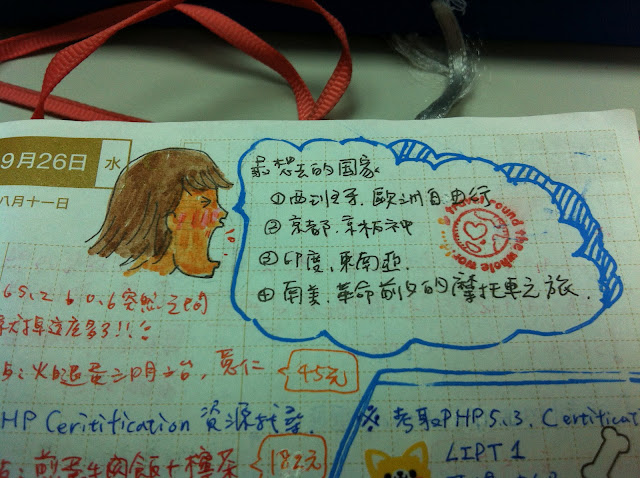 9月26日 水
八月十一日
最想去的国家
①西班牙.歐洲自由行
②京都.京板神
③印度.東南亞.
④南美.革命前夕的摩托車之旅.
around the whole world
65.2 60.6突然之間
掉這麼多了!!
:火腿蛋三明治,薏仁 45元
HP Ceritification 資源找尋.
※考取PHP5.3. Certificat
LIPT 1
:煎蛋牛肉飯+檸茶 182元